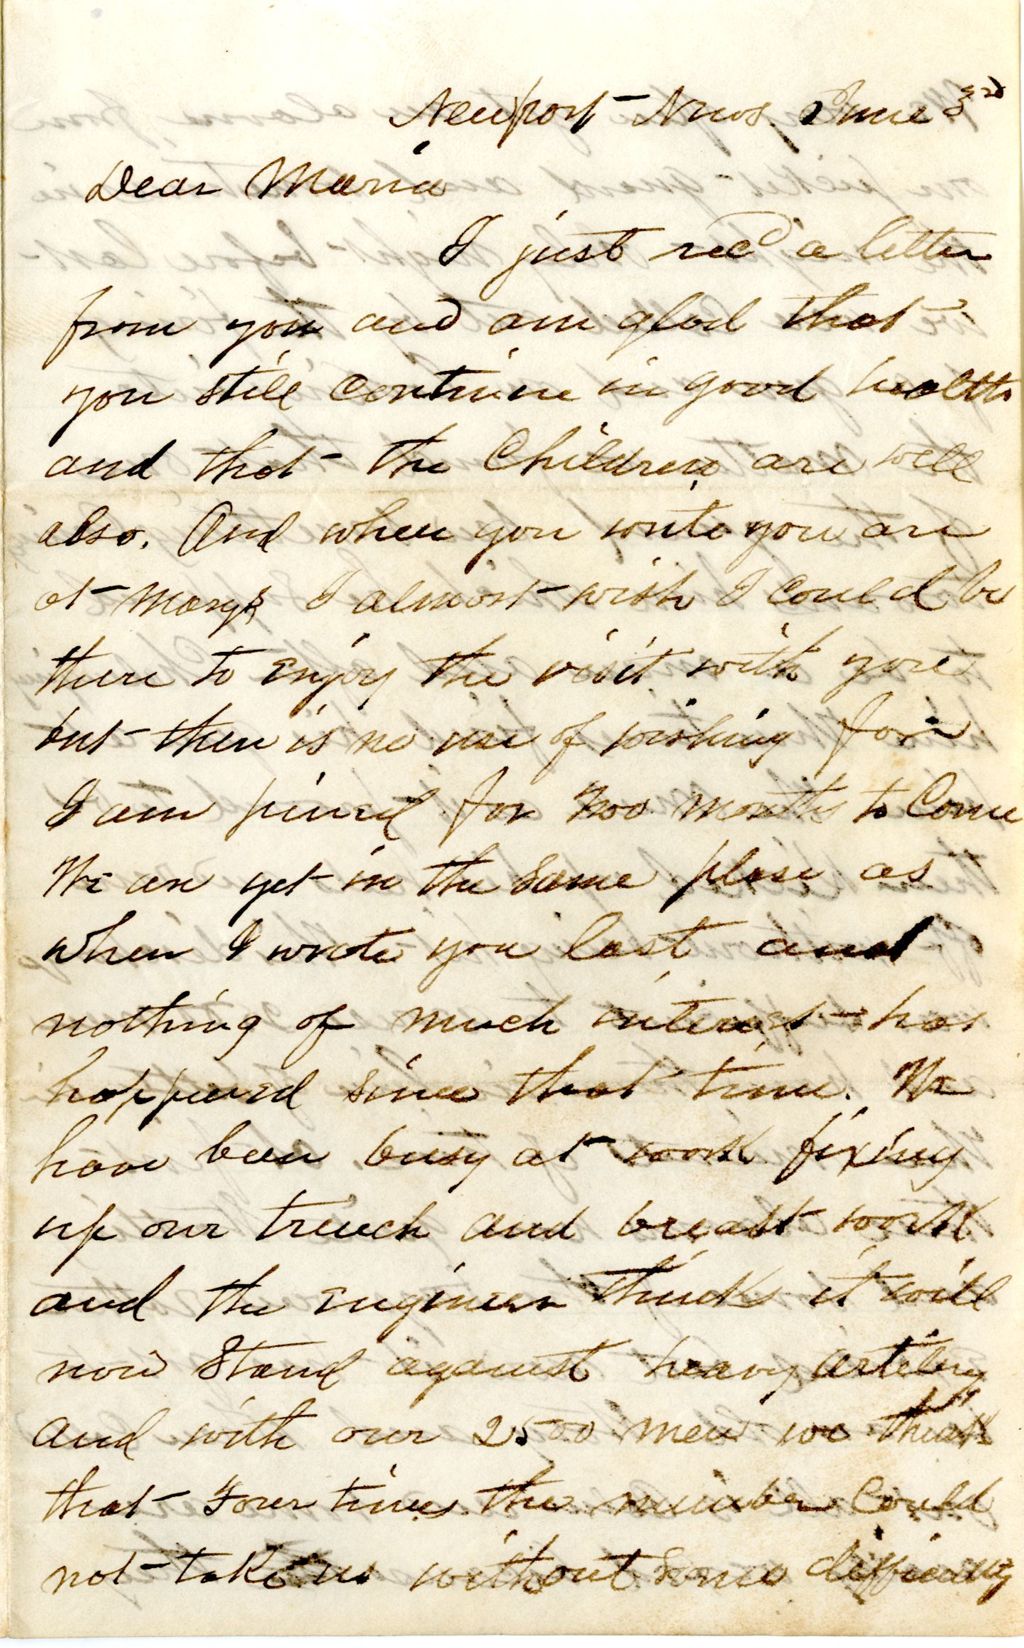 Newport News. June 3rd
Dear Maria
I just recd a letter
from you and am glad that
you still continue in good health
and that the Children are well
also. And when you write you are
at Marys I almost wish I could be
there to enjoy the visit with you
but there is no use of wishing for
I am pined for two months to Come
We are yet in the same place as
when I wrote you last and
nothing of much interest has
happened since that time. We
have been busy at work fixing
up our trench and breast work
and the Engineer thinks it will
now Stand against heavy artilery
and with our 2500 men we think
that Four times the number Could
not take us without some difficulty